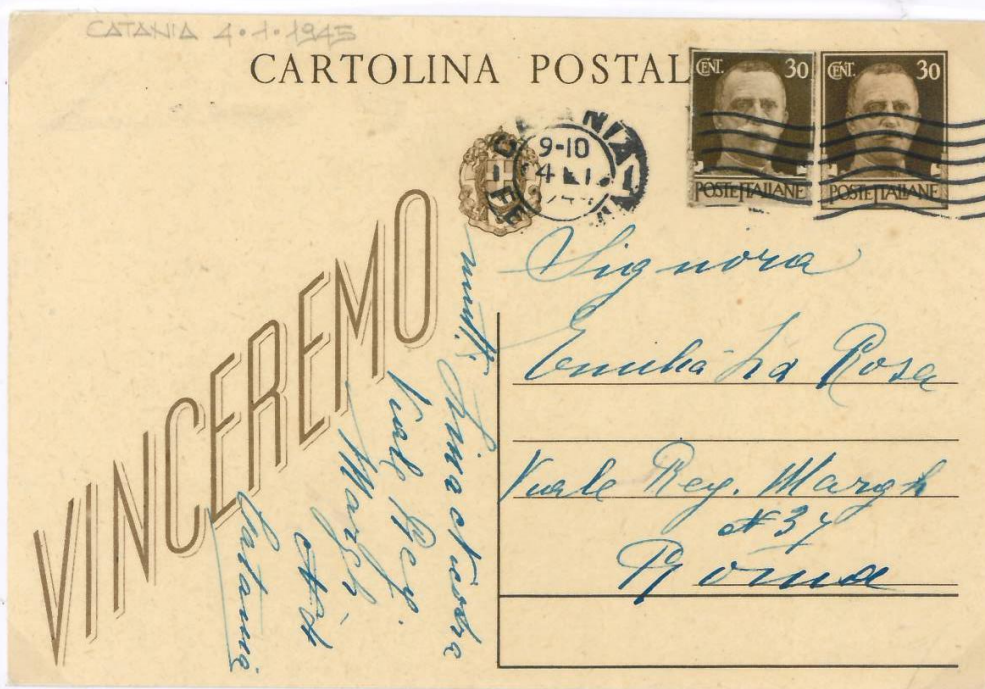 CATANIA 4·1·1945
CARTOLINA POSTAL
CENT. 30
POSTE ITALIANE
CENT. 30
POSTE ITALIANE
9-10
VINCEREMO
Signora
Emilia La Rosa
Viale Reg. Margh
N 37
Roma
mitt.
Viale Reg.
Margh.
Catania